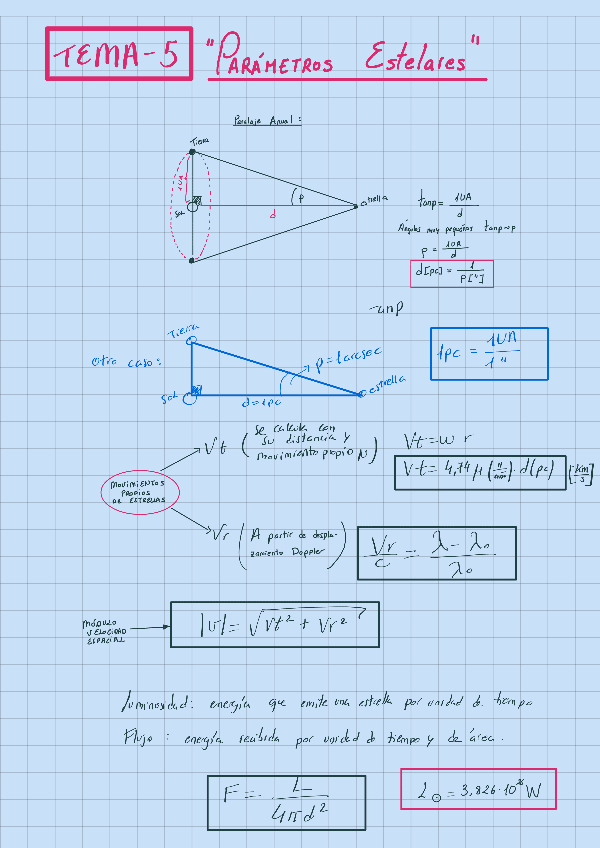 TEMA-5 "PARÁMETROS Estelares"
Paralaje Anual:
Tierra
1UA
Sol
d
p
estrella
tanp = 1UA / d
Ángulos muy pequeños tanp~p
p = 1UA / d
d[pc] = 1 / p["]
Otro caso:
Tierra
Sol
d=1pc
p=1arcsec
estrella
1pc = 1UA / 1"
MOVIMIENTOS
PROPIOS
DE ESTRELLAS
Vt (se calcula con
su distancia y
movimiento propio μ)
Vt=w r
Vt= 4,74 μ ["/año] · d(pc) [Km/s]
Vr (A partir de despla-
zamiento Doppler)
Vr/c = λ - λ₀ / λ₀
MÓDULO
VELOCIDAD
ESPACIAL
|v|= √Vt² + Vr²
Luminosidad: energía que emite una estrella por unidad de tiempo
Flujo: energía recibida por unidad de tiempo y de área.
F = L / 4πd²
L⊙ = 3,826·10²⁶ W